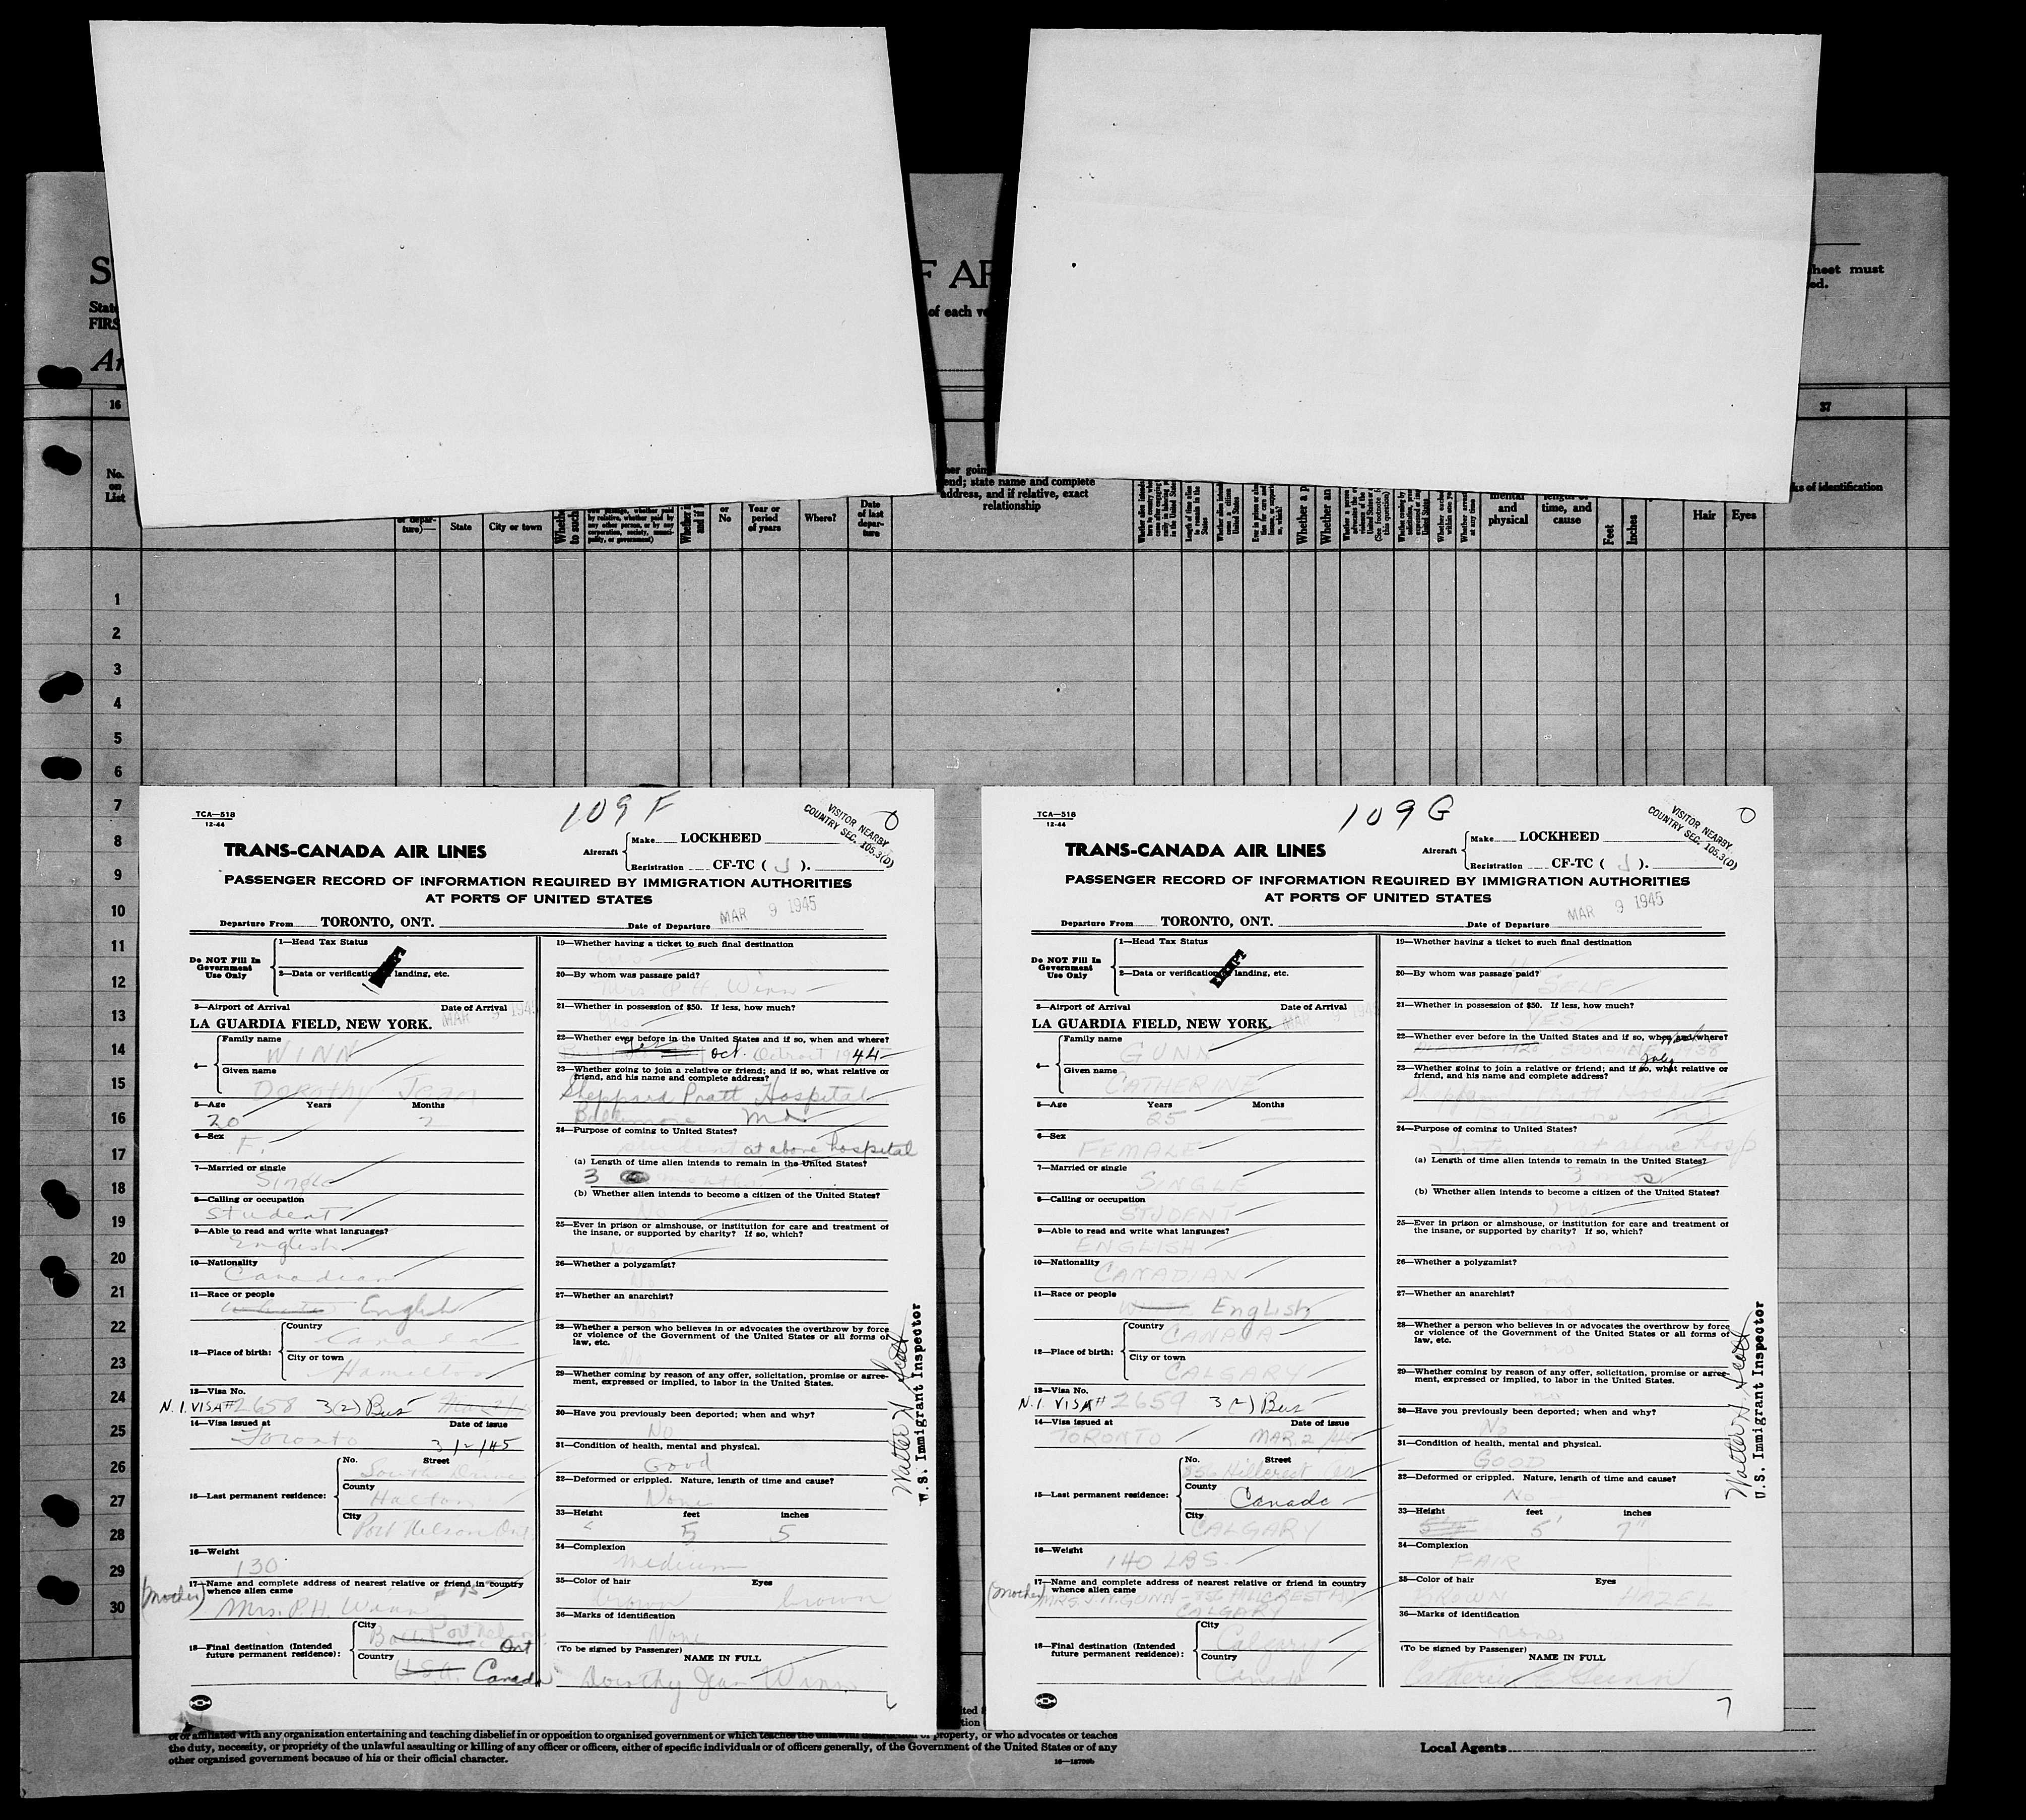 S
F AR
heet must
ed.
State
FIRS
of each ve
An
16
37
No.
on
List
ture)—
State
City or town
or
No
Year or
period
of years
Where?
Date
of last
depar-
ture
her goin
end; state name and complete
address, and if relative, exact
relationship
mental
and
physical
time, and
cause
Feet
Inches
Hair
Eyes
ks of identification
1
2
3
4
5
6
7
8
9
10
11
12
13
14
15
16
17
18
19
20
21
22
23
24
25
26
27
28
29
30
109 F
TCA—518
12-44
VISITOR NEARBY
COUNTRY SEC. 105.3(D)
0
TRANS-CANADA AIR LINES
Aircraft
Make LOCKHEED
Registration CF-TC ( J ).
PASSENGER RECORD OF INFORMATION REQUIRED BY IMMIGRATION AUTHORITIES
AT PORTS OF UNITED STATES
MAR 9 1945
Departure From TORONTO, ONT. Date of Departure
Do NOT Fill In
Government
Use Only
1—Head Tax Status
2—Data or verification landing, etc.
3—Airport of Arrival Date of Arrival
LA GUARDIA FIELD, NEW YORK. MAR 9 1945
4—
Family name
WINN
Given name
Dorothy Jean
5—Age Years Months
20 2
6—Sex
F.
7—Married or single
Single
8—Calling or occupation
Student
9—Able to read and write what languages?
English
10—Nationality
Canadian
11—Race or people
White English
12—Place of birth:
Country
Canada
City or town
Hamilton
13—Visa No.
N.I. VISA # 2658 3(2) Bus
14—Visa issued at Date of issue
Toronto 3/2/45
15—Last permanent residence:
No. Street
South Drive
County
Halton
City
Port Nelson Ont
16—Weight
130
17—Name and complete address of nearest relative or friend in country
whence alien came
(Mother) Mrs. P.H. Winn
18—Final destination (Intended
future permanent residence):
City
Port Nelson Ont
Country
U.S.A. Canada
19—Whether having a ticket to such final destination
20—By whom was passage paid?
Mrs P H Winn
21—Whether in possession of $50. If less, how much?
22—Whether ever before in the United States and if so, when and where?
Oct. Detroit 1944
23—Whether going to join a relative or friend; and if so, what relative or
friend, and his name and complete address?
Sheppard Pratt Hospital
Baltimore Md
24—Purpose of coming to United States?
at above hospital
(a) Length of time alien intends to remain in the United States?
3 months
(b) Whether alien intends to become a citizen of the United States?
No
25—Ever in prison or almshouse, or institution for care and treatment of
the insane, or supported by charity? If so, which?
No
26—Whether a polygamist?
No
27—Whether an anarchist?
No
28—Whether a person who believes in or advocates the overthrow by force
or violence of the Government of the United States or all forms of
law, etc.
No
29—Whether coming by reason of any offer, solicitation, promise or agree-
ment, expressed or implied, to labor in the United States.
30—Have you previously been deported; when and why?
No
31—Condition of health, mental and physical.
Good
32—Deformed or crippled. Nature, length of time and cause?
None
33—Height feet inches
5 5
34—Complexion
Medium
35—Color of hair Eyes
brown brown
36—Marks of identification
None
(To be signed by Passenger)
NAME IN FULL
Dorothy Jean Winn
Walter H Scott
U.S. Immigrant Inspector
109 G
TCA—518
12-44
VISITOR NEARBY
COUNTRY SEC. 105.3(D)
0
TRANS-CANADA AIR LINES
Aircraft
Make LOCKHEED
Registration CF-TC ( J ).
PASSENGER RECORD OF INFORMATION REQUIRED BY IMMIGRATION AUTHORITIES
AT PORTS OF UNITED STATES
MAR 9 1945
Departure From TORONTO, ONT. Date of Departure
Do NOT Fill In
Government
Use Only
1—Head Tax Status
2—Data or verification landing, etc.
EXEMPT
3—Airport of Arrival Date of Arrival
LA GUARDIA FIELD, NEW YORK. MAR 9 194
4—
Family name
GUNN
Given name
CATHERINE
5—Age Years Months
25 —
6—Sex
FEMALE
7—Married or single
SINGLE
8—Calling or occupation
STUDENT
9—Able to read and write what languages?
ENGLISH
10—Nationality
CANADIAN
11—Race or people
White English
12—Place of birth:
Country
CANADA
City or town
CALGARY
13—Visa No.
N.I. VISA # 2659 3(2) Bus
14—Visa issued at Date of issue
TORONTO MAR 2/45
15—Last permanent residence:
No. Street
Hillcrest Av
County
Canada
City
CALGARY
16—Weight
140 LBS.
17—Name and complete address of nearest relative or friend in country
whence alien came
(Mother) MRS. J.N. GUNN - 836 HILLCREST AV
CALGARY
18—Final destination (Intended
future permanent residence):
City
Calgary
Country
Canada
19—Whether having a ticket to such final destination
20—By whom was passage paid?
SELF
21—Whether in possession of $50. If less, how much?
YES
22—Whether ever before in the United States and if so, when and where?
SPOKANE 1938
July
23—Whether going to join a relative or friend; and if so, what relative or
friend, and his name and complete address?
Sheppard Pratt Hospital
24—Purpose of coming to United States?
at above hosp
(a) Length of time alien intends to remain in the United States?
3 mos
(b) Whether alien intends to become a citizen of the United States?
no
25—Ever in prison or almshouse, or institution for care and treatment of
the insane, or supported by charity? If so, which?
no
26—Whether a polygamist?
no
27—Whether an anarchist?
no
28—Whether a person who believes in or advocates the overthrow by force
or violence of the Government of the United States or all forms of
law, etc.
no
29—Whether coming by reason of any offer, solicitation, promise or agree-
ment, expressed or implied, to labor in the United States.
no
30—Have you previously been deported; when and why?
No
31—Condition of health, mental and physical.
GOOD
32—Deformed or crippled. Nature, length of time and cause?
No
33—Height feet inches
5' 7"
34—Complexion
FAIR
35—Color of hair Eyes
BROWN HAZEL
36—Marks of identification
none
(To be signed by Passenger)
NAME IN FULL
Catherine Gunn
Walter H Scott
U.S. Immigrant Inspector
or affiliated with any organization entertaining and teaching disbelief in or opposition to organized government or which teaches the unlawful destruction of property, or who advocates or teaches
the duty, necessity, or propriety of the unlawful assaulting or killing of any officer or officers, either of specific individuals or of officers generally, of the Government of the United States or of any
other organized government because of his or their official character.
Local Agents